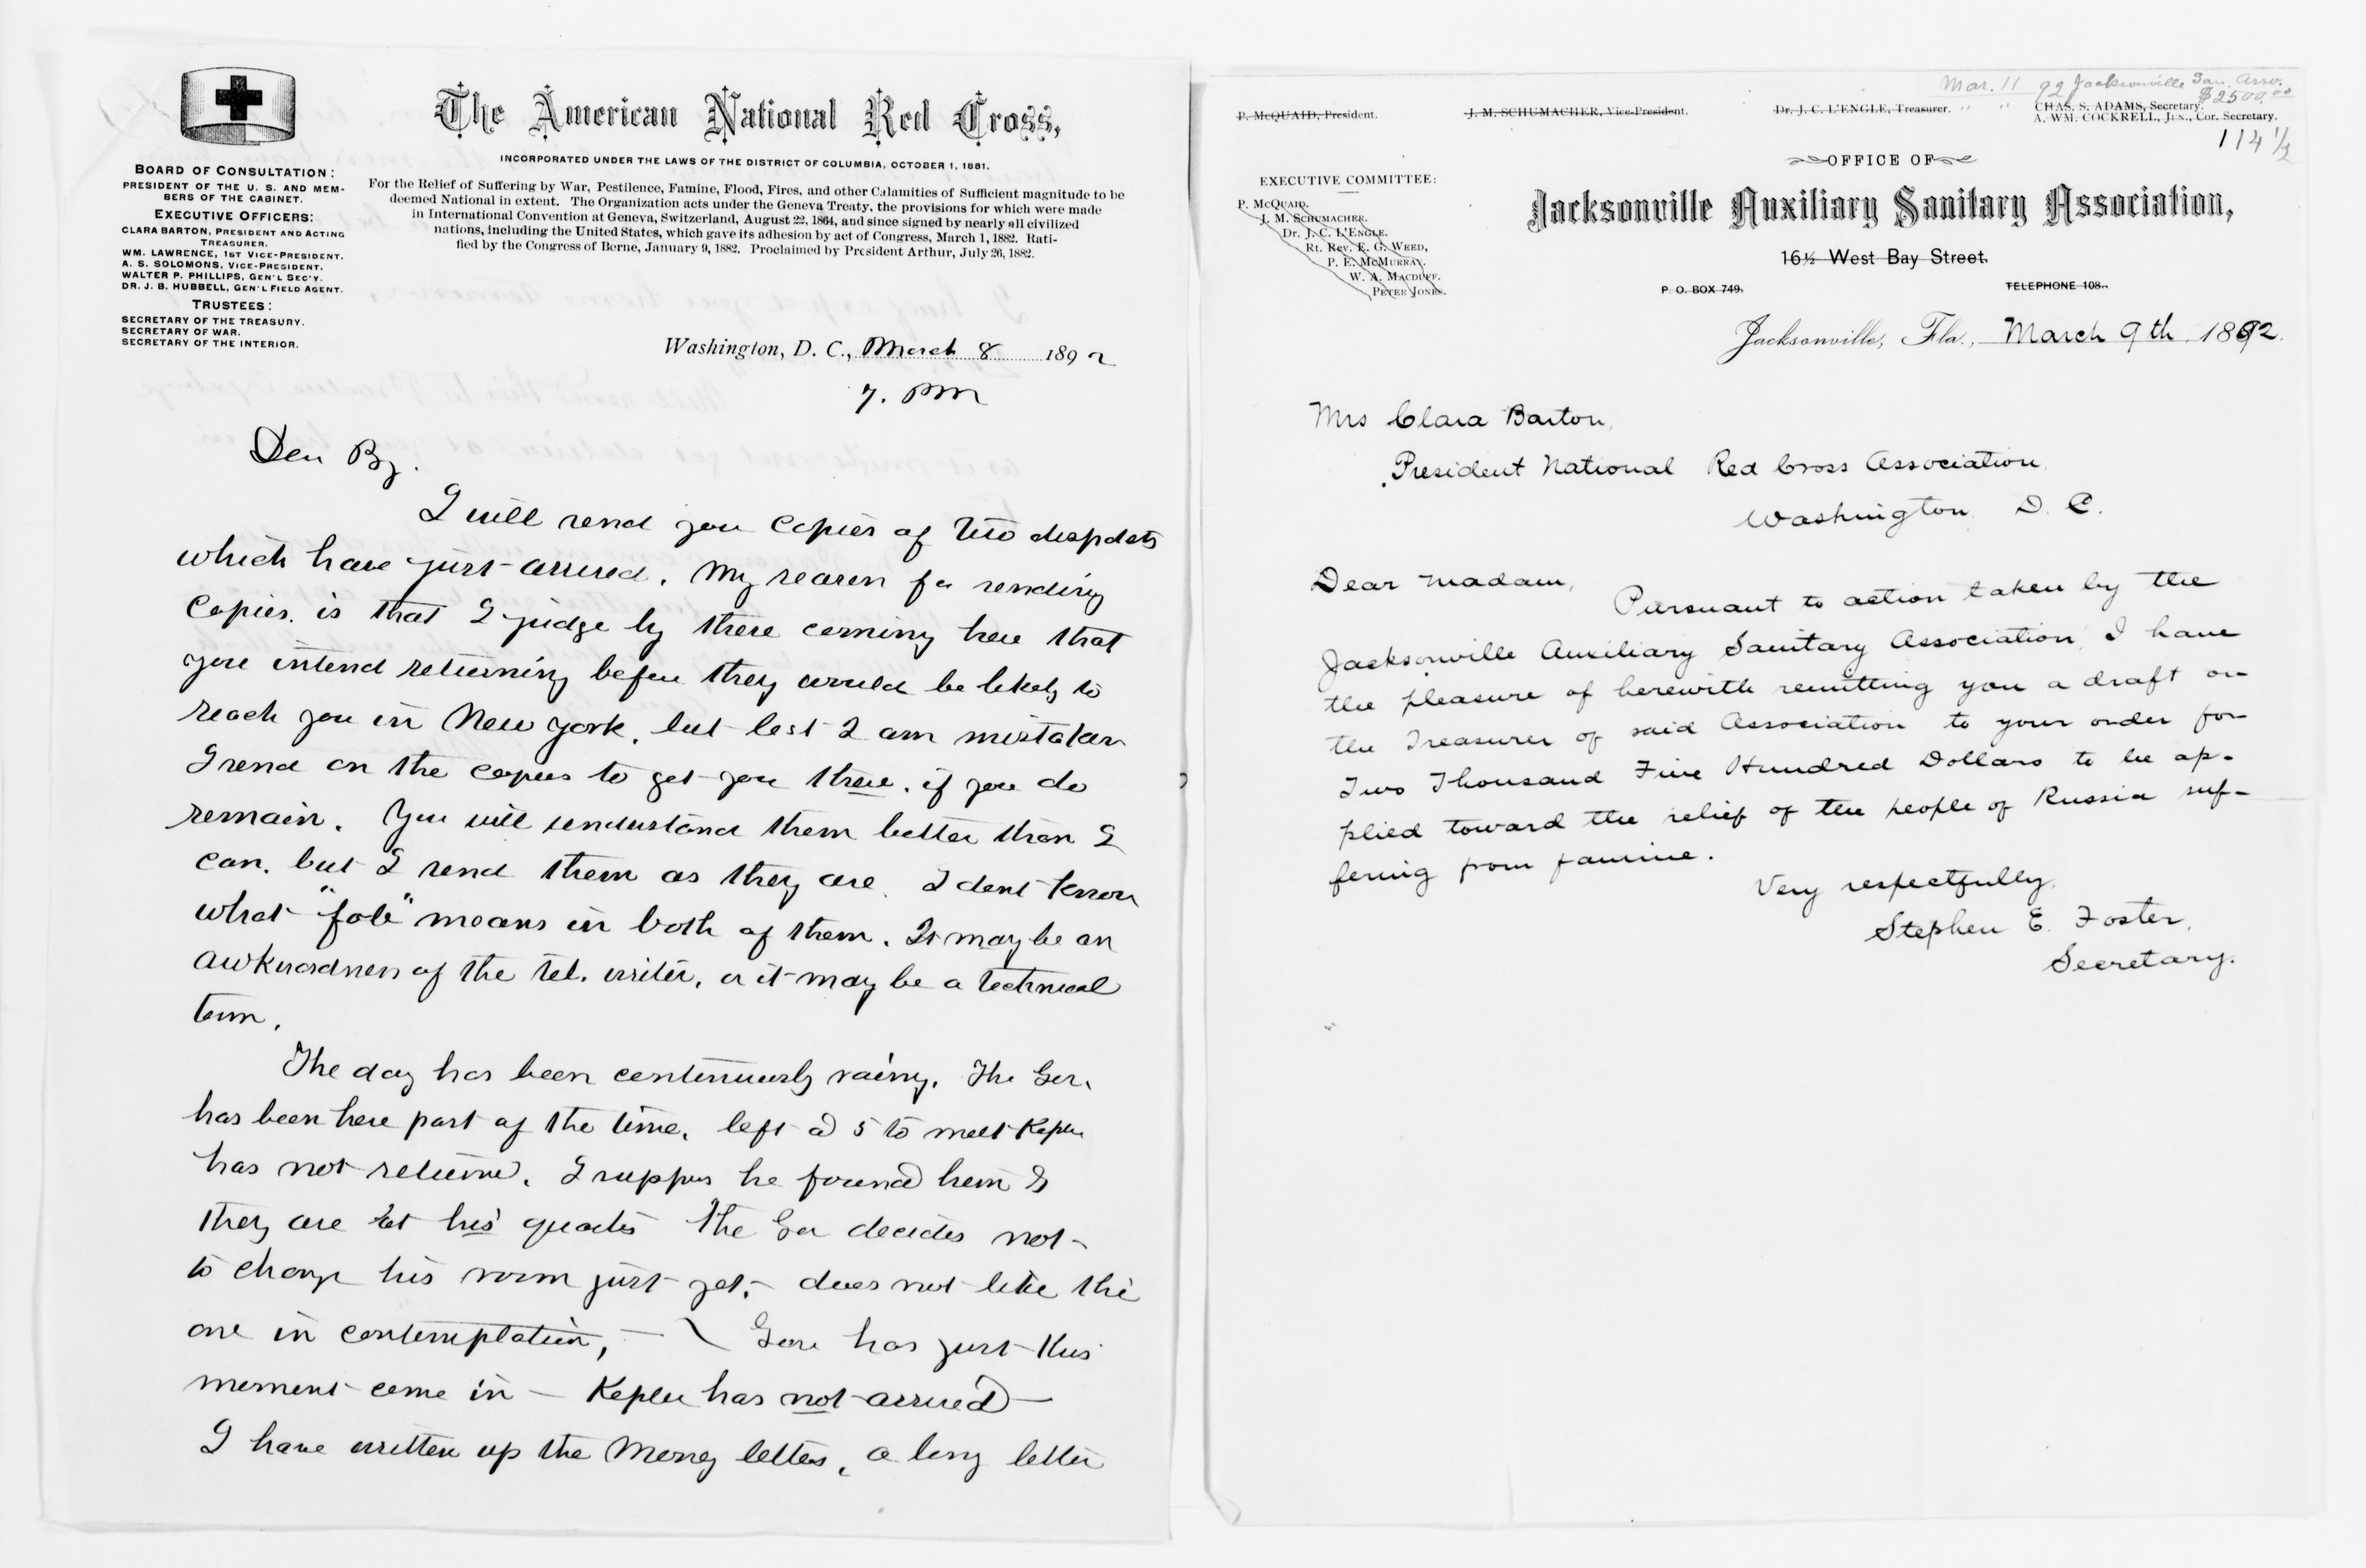 The American National Red Cross,
INCORPORATED UNDER THE LAWS OF THE DISTRICT OF COLUMBIA, OCTOBER 1, 1881.
For the Relief of Suffering by War, Pestilence, Famine, Flood, Fires, and other Calamities of Sufficient magnitude to be
deemed National in extent. The Organization acts under the Geneva Treaty, the provisions for which were made
in International Convention at Geneva, Switzerland, August 22, 1864, and since signed by nearly all civilized
nations, including the United States, which gave its adhesion by act of Congress, March 1, 1882. Rati-
fied by the Congress of Berne, January 9, 1882. Proclaimed by President Arthur, July 26, 1882.
BOARD OF CONSULTATION:
PRESIDENT OF THE U. S. AND MEM-
BERS OF THE CABINET.
EXECUTIVE OFFICERS:
CLARA BARTON, PRESIDENT AND ACTING
TREASURER.
WM. LAWRENCE, 1ST VICE-PRESIDENT.
A. S. SOLOMONS, VICE-PRESIDENT.
WALTER P. PHILLIPS, GEN'L SEC'Y.
DR. J. B. HUBBELL, GEN'L FIELD AGENT.
TRUSTEES:
SECRETARY OF THE TREASURY.
SECRETARY OF WAR.
SECRETARY OF THE INTERIOR.
Washington, D. C., March 8 1892
7. PM
Dear
I will send you copies of two
which have just arrived. My reason for sending
copies. is that I judge by there coming here that
you intend returning before they would be likely to
reach you in New York. but lest I am mistaken
I send on the copies to get you there. if you do
remain. You will understand them better than I
can. but I send them as they are. I dont know
what "fob" means in both of them. It may be an
awkwardness of the tel. writer, or it may be a technical
term.
The day has been continuously rainy. The Gen.
has been here part of the time. left at 5 to meet Kepler
has not returned. I suppose he found him &
they are at his quarters The Gen decides not
to change his room just yet. does not like the
one in contemplation, — Gen has just this
moment come in — Kepler has not arrived —
I have written up the Money letters, a long letter
Mar. 11 92 Jacksonville San. Asso.
" " $2500.00
114 1/2
P. McQUAID, President.
J. M. SCHUMACHER, Vice-President.
Dr. J. C. L'ENGLE, Treasurer.
CHAS. S. ADAMS, Secretary.
A. WM. COCKRELL, JUN., Cor. Secretary.
OFFICE OF
Jacksonville Auxiliary Sanitary Association,
16½ West Bay Street.
P. O. BOX 749.
TELEPHONE 108.
EXECUTIVE COMMITTEE:
P. McQUAID.
J. M. SCHUMACHER.
Dr. J. C. L'ENGLE.
Rt. Rev. E. G. WEED,
P. E. McMURRAY.
W. A. MACDUFF.
PETER JONES.
Jacksonville, Fla., March 9th 1892.
Mrs Clara Barton,
President National Red Cross Association
Washington D. C.
Dear Madam,
Pursuant to action taken by the
Jacksonville Auxiliary Sanitary Association, I have
the pleasure of herewith remitting you a draft on
the Treasurer of said Association to your order for
Two Thousand Five Hundred Dollars to be ap-
plied toward the relief of the people of Russia suf-
fering from famine.
Very respectfully,
Stephen E. Foster,
Secretary.